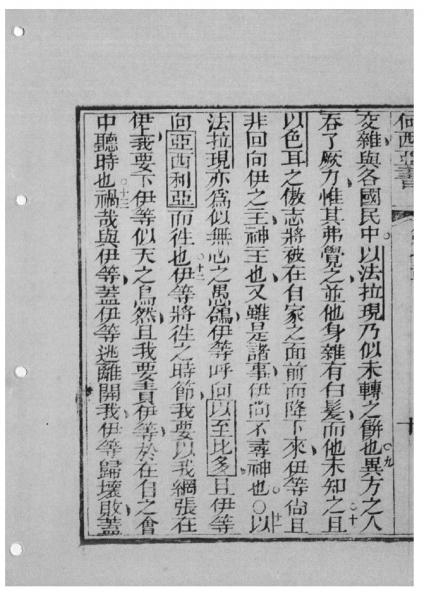 何西亞書
交雜與各國民中以法拉現乃似未轉之餅也○九異方之人
吞了厥力惟其弗覺之並他身雜有白髮而他未知之○十且
以色耳之傲志將被在自家之面前而降下來伊等倘且
非回向伊之主神主也又雖是諸事伊尚不尋神也○十一以
法拉現亦爲似無心之愚鴿伊等呼向以至比多且伊等
向亞西利亞而徃也○十二伊等將徃之時節我要以我網張在
伊上我要下伊等似天之鳥然且我要責伊等於在自之會
中聽時也○十三禍哉與伊等蓋伊等逃離開我伊等歸壞敗蓋